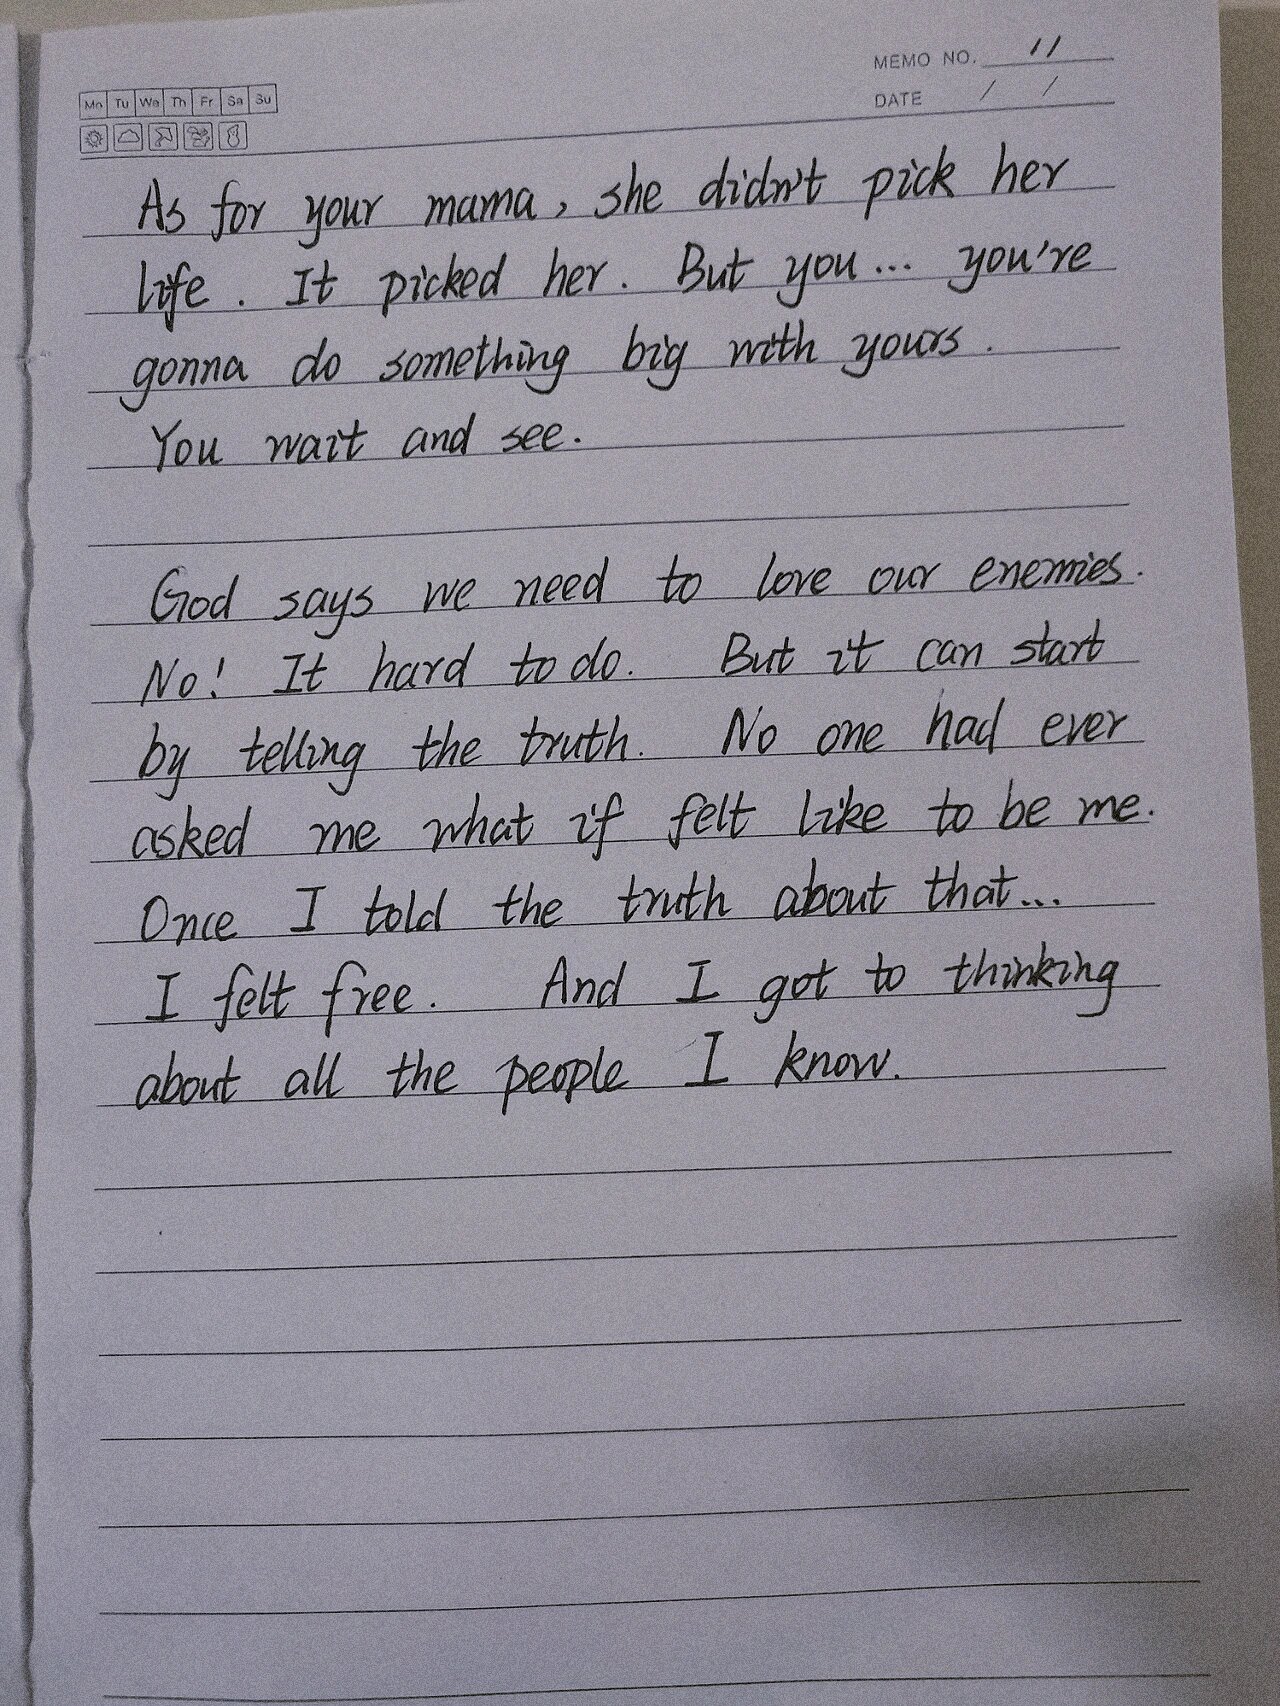 MEMO NO. 11
DATE / /
Mo Tu We Th Fr Sa Su
As for your mama, she didn't pick her
life. It picked her. But you... you're
gonna do something big with yours.
You wait and see.
God says we need to love our enemies.
No! It hard to do. But it can start
by telling the truth. No one had ever
asked me what if felt like to be me.
Once I told the truth about that...
I felt free. And I got to thinking
about all the people I know.